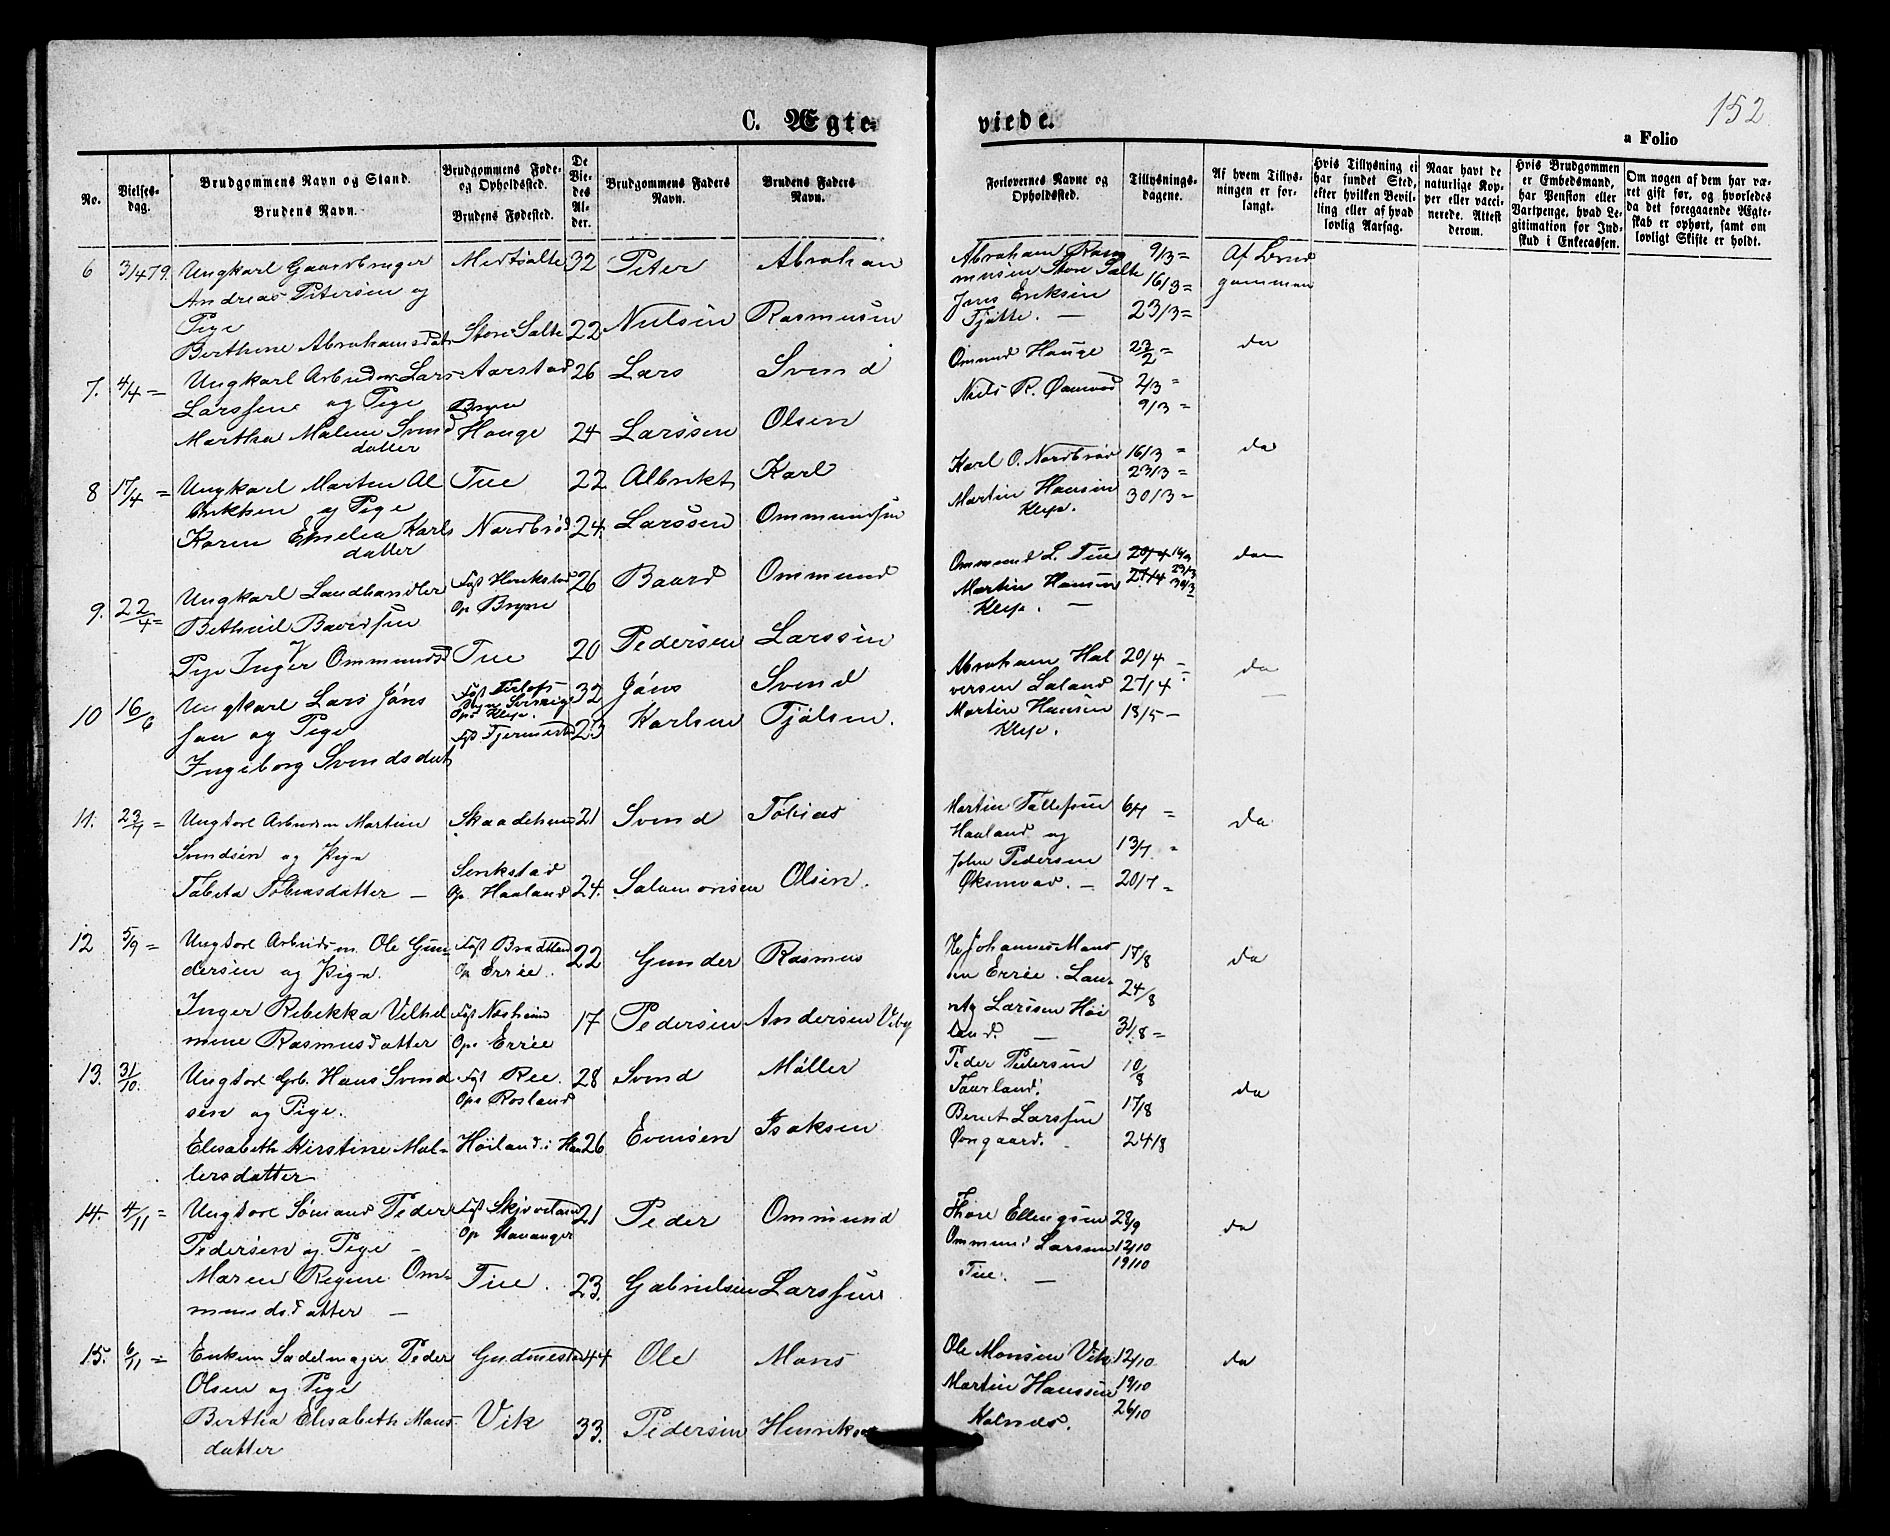 C. Ægteviede.
152
a Folio
No.
Vielses-
dag.
Brudgommens Navn og Stand.
Brudens Navn.
Brudgommens Føde-
og Opholdssted.
Brudens Fødested.
De
Vie-
des
Al-
der.
Brudgommens Faders
Navn.
Brudens Faders
Navn.
Forlovernes Navne og
Opholdssted.
Tillysnings-
dagene.
Af hvem Tillys-
ningen er for-
langt.
Hvis Tillysning ei
har fundet Sted,
efter hvilken Bevil-
ling eller af hvad
lovlig Aarsag.
Naar havt de
naturlige Kop-
per eller vacci-
nerede. Attest
derom.
Hvis Brudgommen
er Embedsmand,
har Pension eller
Vartpenge, hvad Le-
gitimation for Ind-
skud i Enkecassen.
Om nogen af dem har væ-
ret gift før, og hvorledes
da det foregaaende Ægte-
skab er ophørt, samt om
lovligt Skifte er holdt.
6 3/4 79. Ungkarl Gaardbruger
Andreas Petersen og
Pige
Berthine Abrahamsdat
Store Salte
32 22
Peter Nielsen
Abraham Rasmusen
Abraham Ras
musen Store Salte
Jens Eriksen
Tjøtte. —
9/3 =
16/3 =
23/3 =
Af Brud
gommen
7. 4/4 = Ungkarl Lars
Larssene og Pige
Martha Malene Svend
datter
Aarstad
Bryne
Houge
26 24
Lars Larssen
Svend Olsen
Omund Houge
Niels R.
23/2 =
2/3 =
9/3 =
da
8 17/4 = Ungkarl Marten Al
briktsen og Pige
Karen Emelia Karls
datter
Tue
Nordbrød
22 24
Albrikt Larssen
Karl Ommundsen
Karl O. Nordbrød
Martin Hansen
Klep.
16/3 =
23/3 =
30/3 =
da
9. 22/4 = Ungkarl Landhandler
Pige Inger Ommundsd
Op Bryne
Tue
26 20
Baard Pedersen
Ommund Larssen
Ommund L. Tue
Martin Hansen
Klep. —
20/4 16/3
27/4 23/3
30/3
da
10 16/6 Ungkarl Lars Jøns
sen og Pige
Ingeborg Svendsdat
Op Klep.
32 23
Jøns Karlsen
Svend Tjølsen.
Abraham Hal
versen Laland
Martin Hansen
Klep.
20/4 =
27/4 =
18/5 —
da
11. 23/7 = Ungkarl Arbeidsm Martin
Svendsen og Pige
Tabeta Tobiasdatter —
Op. Haaland
21 24.
Svend Salamonsen
Tobias Olsen.
Martin Tollefsen
Haaland og
John Pedersen
Øksnevad. —
6/7 =
13/7 =
20/7 =
da
12 5/9 = Ungkarl Arbeidsm. Ole Gun-
dersen og Pige.
Inger Rebekka Vilhel
mine Rasmusdatter
Op Erréé.
Føst Næsheim
Ops Erréé
22 17
Gunder Pedersen
Rasmus Andersen Viby
Johannes Mons
en Erréé. Lau-
ritz Larssen Høi
land. —
17/8
24/8
31/8 =
da
13. 31/10. Ungkarl Grb. Hans Svend
sen og Pige.
Elisabeth Kirstine Møl-
lersdatter
Føst Ree.
Ops Rosland
Høiland i Haa
28 26
Svend Evensen
Møller Isaksen
Peder Pedersen
Taarland.
Berent Larssen
Øongaard.
10/8
17/8
24/8
da
14. 4/11 = Ungkarl Sømand Peder
Pedersen og Pige —
Maren Regine Om-
mundsdatter —
Op Stavanger
Tue.
21 23.
Peder Gabrielsen
Ommund Larssen
Thore Ellingsen
Ommund Larssen
Tue. —
28/9
12/10
19/10
da
15. 6/11 = Enkem Sadelmager Peder
Olsen og Pige
Bertha Elisabeth Mons
datter
Gudmestad
Vik
44 33.
Ole Pedersen
Mons Henriksen
Ole Monsen Vik
Martin Hanssen
12/10
19/10
26/10
da